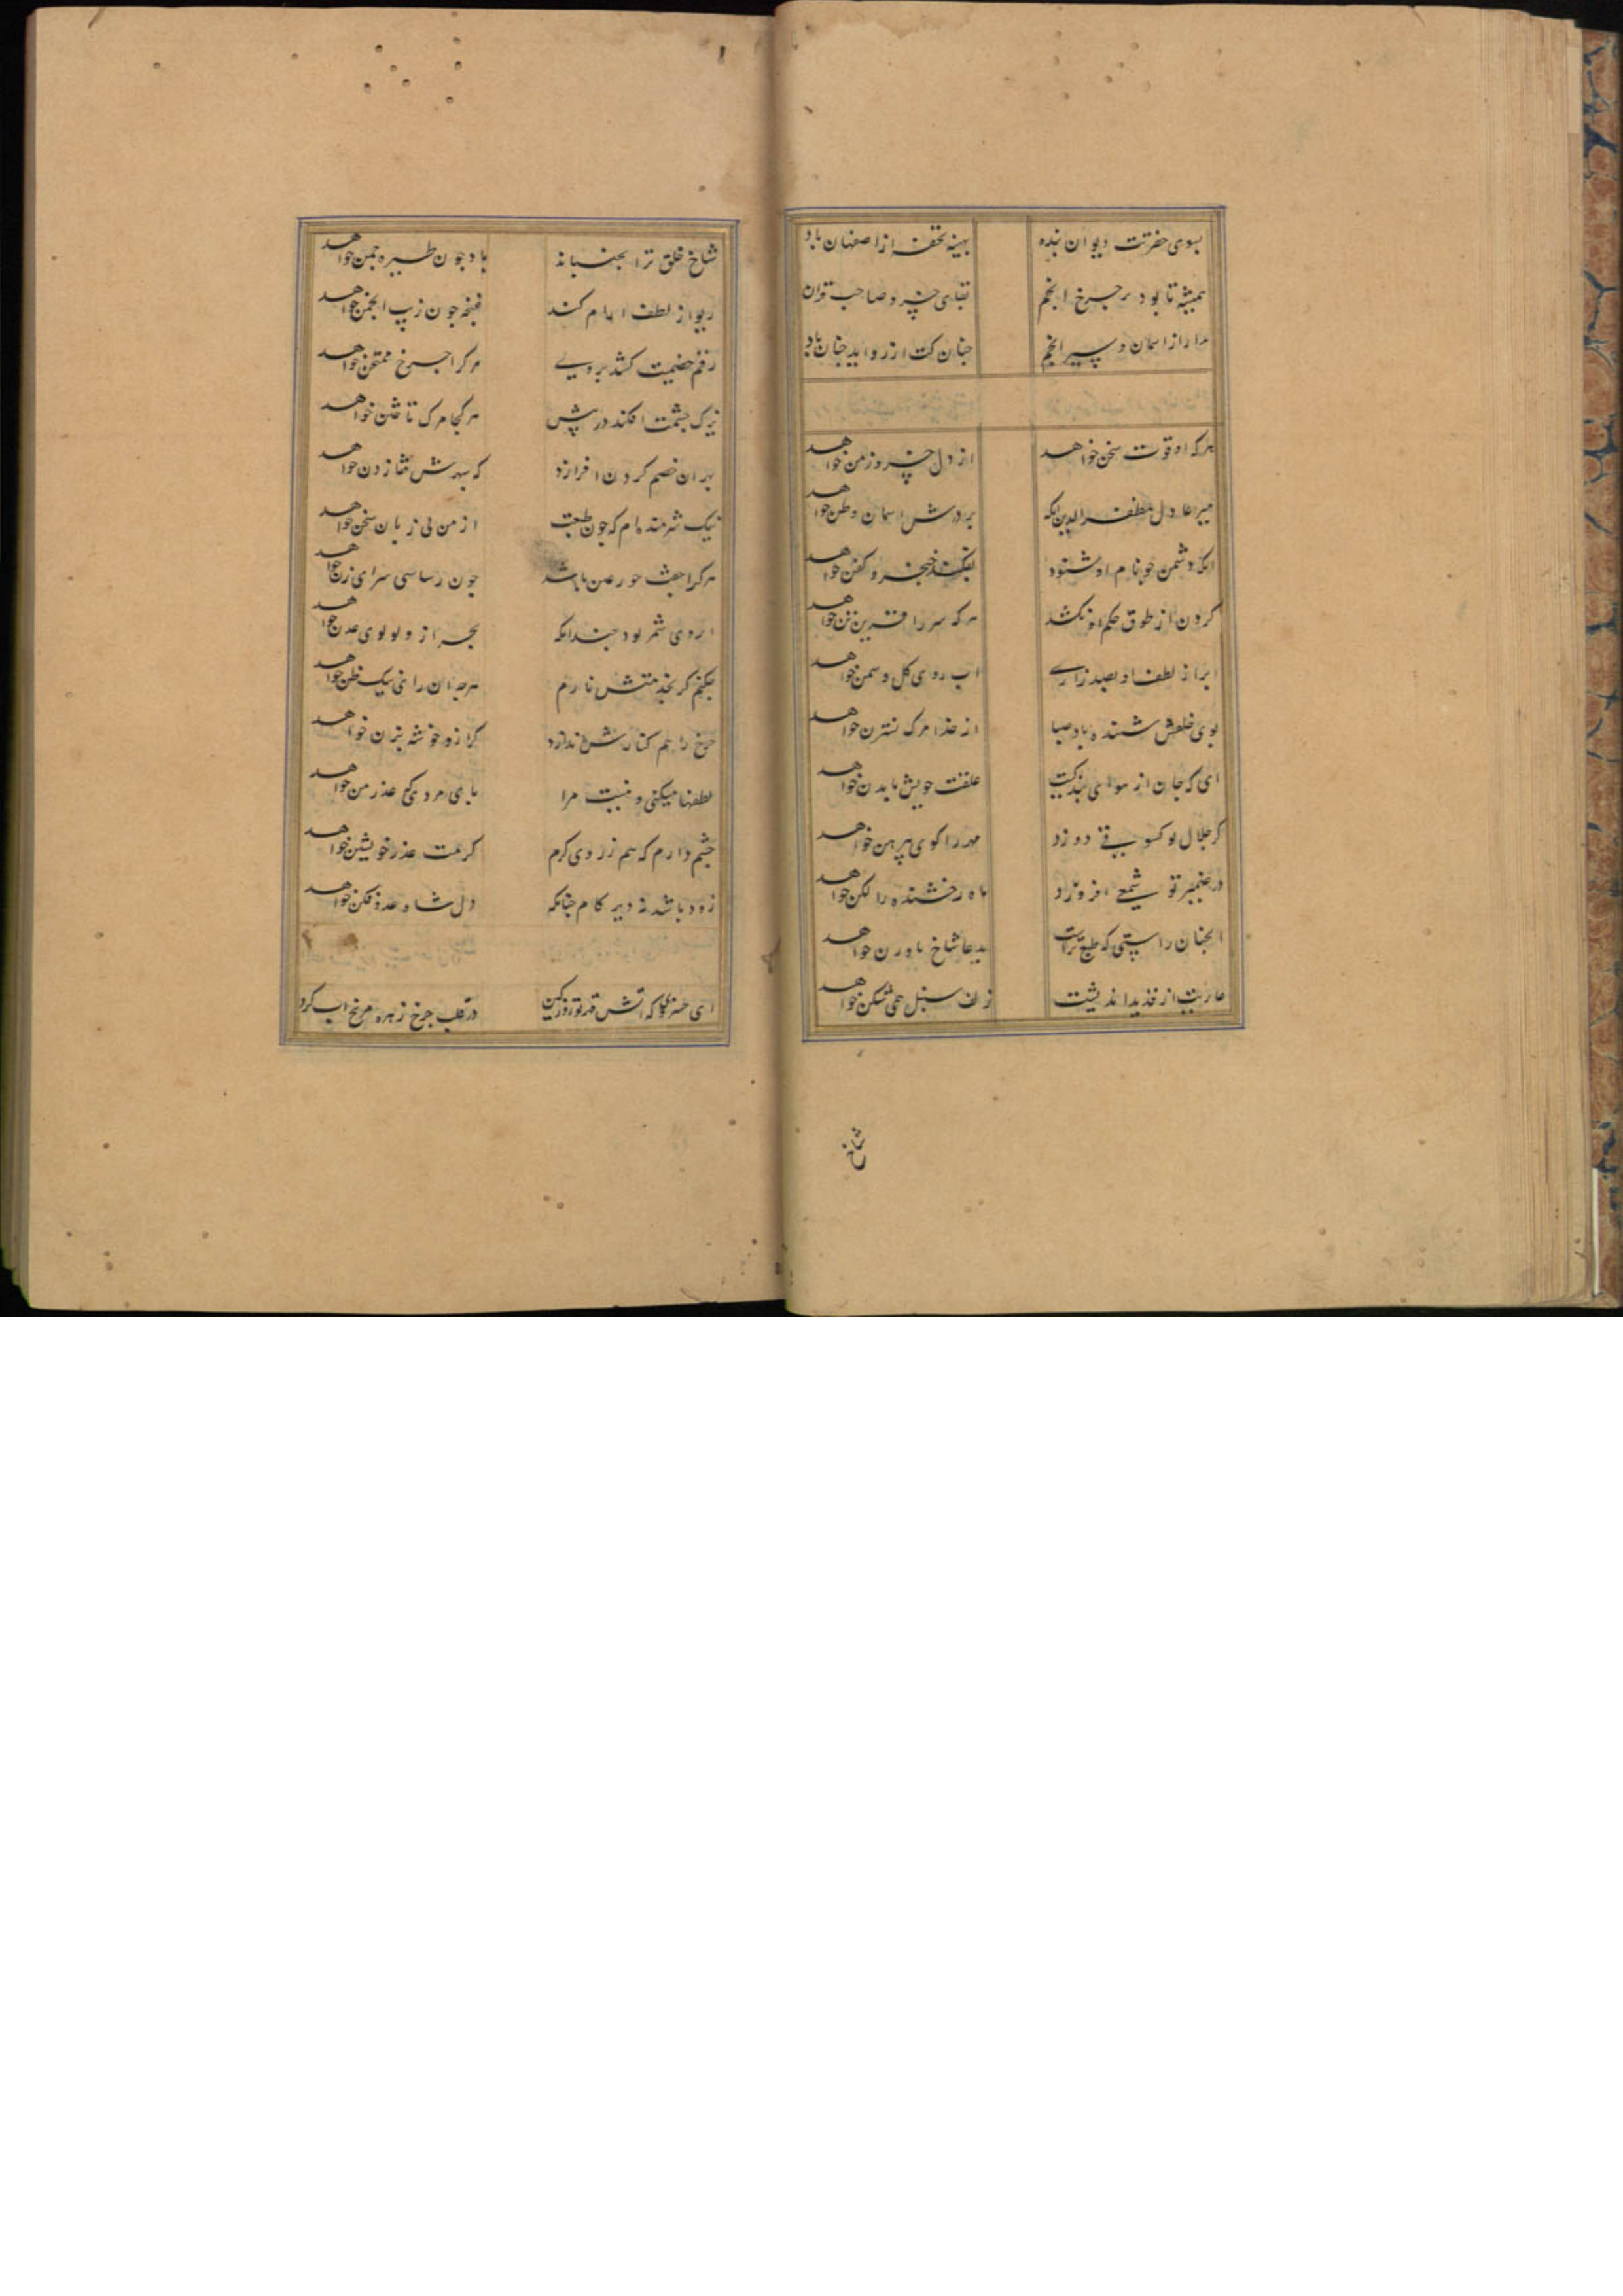 بسوی حضرتت دیوان بنده بهینه تحفه از اصفهان باد
همیشه تا بود بر چرخ انجم بقای خسرو صاحب قران
مدار از اسمان و سیر انجم جنان کت ارزو اید جنان باد
هرکه او قوت سخن خواهد از دل خسرو زمن خواهد
میر عادل مظفر الدین بردرش اسمان وطن خواهد
انک دشمن جو نام او شنود خنجر و کفن خواهد
کردن از طوق حکم او نکشد هرکه سر را قرین تن خواهد
ابر از لطف او بصد زاری اب روی کل و سمن خواهد
بوی خلقش شنید باد صبا از مرک نسترن خواهد
ای که جان از هوای بندکیت علقت خویش با بدن خواهد
کر جلال تو کسوتی دوزد مهر را کوی پیرهن خواهد
در ضمیر تو شمعی افروزد ماه رخشنده را لکن خواهد
انجنان راستی که طبع تراست بدعا شاخ نارون خواهد
عاریت از اندیشت زلف سنبل همی شکن خواهد
شاخ
شاخ خلق ترا بجنباند باد جون طیره جمن خواهد
ریو از لطف کند غنجه جون زیب انجمن خواهد
رقم خصمیت کشد بر وی هرکرا جرخ ممتحن خواهد
تیرک جشمت افکند در پیش هرکجا مرک تاختن خواهد
بهر ان خصم کردن افرازد که سرش قفا زدن خواهد
نیک شرمنده ام که جون طبعت از من بی زبان سخن خواهد
هرکرا جفت حور عین باشد جون رسا سی سرای زن خواهد
ابروی شمر بود جندانکه بحر ازو لولوی عدن خواهد
جکنم کر بخدمتش نارم هرجه ان رای نیک ظن خواهد
جرخ را هم کنار ش اندازد کرازو خوشه پرن خواهد
لطفها میکنی و نیست مرا پای مردی که عذر من خواهد
جشم دارم که هم ز روی کرم کرمت عذر خویشتن خواهد
زود باشد نه دیر کام جنانکه دل شاه عدو فکن خواهد
ای خسروی که اتش قهر تو روز کین در قلب جرخ زهره مریخ اب کرد